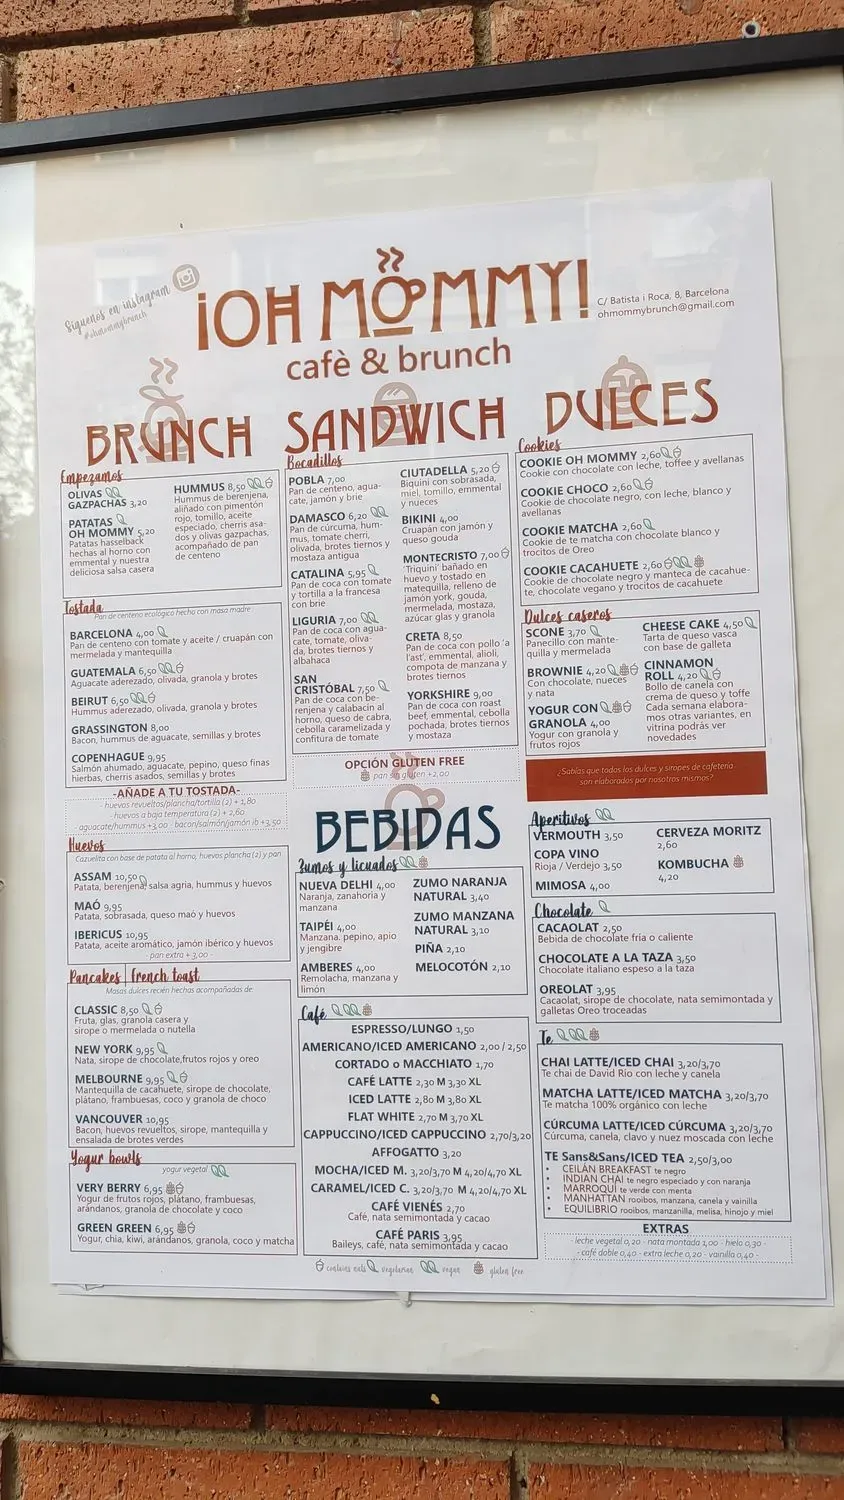 Síguenos en instagram
@ohmommybrunch
¡OH MOMMY!
cafè & brunch
C/ Batista i Roca, 8, Barcelona
ohmommybrunch@gmail.com
BRUNCH
Empezamos
OLIVAS
GAZPACHAS 3,20
PATATAS
OH MOMMY 5,20
Patatas hasselback
hechas al horno con
emmental y nuestra
deliciosa salsa casera
HUMMUS 8,50
Hummus de berenjena,
aliñado con pimentón
rojo, tomillo, aceite
especiado, cherris asa-
dos y olivas gazpachas,
acompañado de pan
de centeno
Tostada
Pan de centeno ecológico hecho con masa madre
BARCELONA 4,00
Pan de centeno con tomate y aceite / cruapán con
mermelada y mantequilla
GUATEMALA 6,50
Aguacate aderezado, olivada, granola y brotes
BEIRUT 6,50
Hummus aderezado, olivada, granola y brotes
GRASSINGTON 8,00
Bacon, hummus de aguacate, semillas y brotes
COPENHAGUE 9,95
Salmón ahumado, aguacate, pepino, queso finas
hierbas, cherris asados, semillas y brotes
-AÑADE A TU TOSTADA-
- huevos revueltos/plancha/tortilla (2) + 1,80
- huevos a baja temperatura (2) + 2,60
- aguacate/hummus +3,00 - bacon/salmón/jamón ib +3,50
Huevos
Cazuelita con base de patata al horno, huevos plancha (2) y pan
ASSAM 10,50
Patata, berenjena, salsa agria, hummus y huevos
MAÓ 9,95
Patata, sobrasada, queso maó y huevos
IBERICUS 10,95
Patata, aceite aromático, jamón ibérico y huevos
- pan extra + 3,00 -
Pancakes | French toast
Masas dulces recién hechas acompañadas de:
CLASSIC 8,50
Fruta, glas, granola casera y
sirope o mermelada o nutella
NEW YORK 9,95
Nata, sirope de chocolate,frutos rojos y oreo
MELBOURNE 9,95
Mantequilla de cacahuete, sirope de chocolate,
plátano, frambuesas, coco y granola de choco
VANCOUVER 10,95
Bacon, huevos revueltos, sirope, mantequilla y
ensalada de brotes verdes
Yogur bowls
yogur vegetal
VERY BERRY 6,95
Yogur de frutos rojos, plátano, frambuesas,
arándanos, granola de chocolate y coco
GREEN GREEN 6,95
Yogur, chia, kiwi, arándanos, granola, coco y matcha
SANDWICH
Bocadillos
POBLA 7,00
Pan de centeno, agua-
cate, jamón y brie
DAMASCO 6,20
Pan de cúrcuma, hum-
mus, tomate cherri,
olivada, brotes tiernos y
mostaza antigua
CATALINA 5,95
Pan de coca con tomate
y tortilla a la francesa
con brie
LIGURIA 7,00
Pan de coca con agua-
cate, tomate, oliva-
da, brotes tiernos y
albahaca
SAN
CRISTÓBAL 7,50
Pan de coca con be-
renjena y calabacín al
horno, queso de cabra,
cebolla caramelizada y
confitura de tomate
CIUTADELLA 5,20
Biquini con sobrasada,
miel, tomillo, emmental
y nueces
BIKINI 4,00
Cruapán con jamón y
queso gouda
MONTECRISTO 7,00
'Triquini' bañado en
huevo y tostado en
matequilla, relleno de
jamón york, gouda,
mermelada, mostaza,
azúcar glas y granola
CRETA 8,50
Pan de coca con pollo 'a
l'ast', emmental, alioli,
compota de manzana y
brotes tiernos
YORKSHIRE 9,00
Pan de coca con roast
beef, emmental, cebolla
pochada, brotes tiernos
y mostaza
OPCIÓN GLUTEN FREE
pan sin gluten +2,00
BEBIDAS
Zumos y licuados
NUEVA DELHI 4,00
Naranja, zanahoria y
manzana
TAIPÉI 4,00
Manzana, pepino, apio
y jengibre
AMBERES 4,00
Remolacha, manzana y
limón
ZUMO NARANJA
NATURAL 3,40
ZUMO MANZANA
NATURAL 3,10
PIÑA 2,10
MELOCOTÓN 2,10
Café
ESPRESSO/LUNGO 1,50
AMERICANO/ICED AMERICANO 2,00 / 2,50
CORTADO o MACCHIATO 1,70
CAFÉ LATTE 2,30 M 3,30 XL
ICED LATTE 2,80 M 3,80 XL
FLAT WHITE 2,70 M 3,70 XL
CAPPUCCINO/ICED CAPPUCCINO 2,70/3,20
AFFOGATTO 3,20
MOCHA/ICED M. 3,20/3,70 M 4,20/4,70 XL
CARAMEL/ICED C. 3,20/3,70 M 4,20/4,70 XL
CAFÉ VIENÉS 2,70
Café, nata semimontada y cacao
CAFÉ PARIS 3,95
Baileys, café, nata semimontada y cacao
contains nuts vegetarian vegan gluten free
DULCES
Cookies
COOKIE OH MOMMY 2,60
Cookie con chocolate con leche, toffee y avellanas
COOKIE CHOCO 2,60
Cookie de chocolate negro, con leche, blanco y
avellanas
COOKIE MATCHA 2,60
Cookie de te matcha con chocolate blanco y
trocitos de Oreo
COOKIE CACAHUETE 2,60
Cookie de chocolate negro y manteca de cacahue-
te, chocolate vegano y trocitos de cacahuete
Dulces caseros
SCONE 3,70
Panecillo con mante-
quilla y mermelada
BROWNIE 4,20
Con chocolate, nueces
y nata
YOGUR CON
GRANOLA 4,00
Yogur con granola y
frutos rojos
CHEESE CAKE 4,50
Tarta de queso vasca
con base de galleta
CINNAMON
ROLL 4,20
Bollo de canela con
crema de queso y toffe
Cada semana elabora-
mos otras variantes, en
vitrina podrás ver
novedades
¿Sabías que todos los dulces y siropes de cafetería
son elaborados por nosotros mismos?
Aperitivos
VERMOUTH 3,50
COPA VINO
Rioja / Verdejo 3,50
MIMOSA 4,00
CERVEZA MORITZ
2,60
KOMBUCHA
4,20
Chocolate
CACAOLAT 2,50
Bebida de chocolate fría o caliente
CHOCOLATE A LA TAZA 3,50
Chocolate italiano espeso a la taza
OREOLAT 3,95
Cacaolat, sirope de chocolate, nata semimontada y
galletas Oreo troceadas
Te
CHAI LATTE/ICED CHAI 3,20/3,70
Te chai de David Rio con leche y canela
MATCHA LATTE/ICED MATCHA 3,20/3,70
Te matcha 100% orgánico con leche
CÚRCUMA LATTE/ICED CÚRCUMA 3,20/3,70
Cúrcuma, canela, clavo y nuez moscada con leche
TE Sans&Sans/ICED TEA 2,50/3,00
• CEILÁN BREAKFAST te negro
• INDIAN CHAI te negro especiado y con naranja
• MARROQUÍ te verde con menta
• MANHATTAN rooibos, manzana, canela y vainilla
• EQUILIBRIO rooibos, manzanilla, melisa, hinojo y miel
EXTRAS
- leche vegetal 0,20 - nata montada 1,00 - hielo 0,30 -
- café doble 0,40 - extra leche 0,20 - vainilla 0,40 -